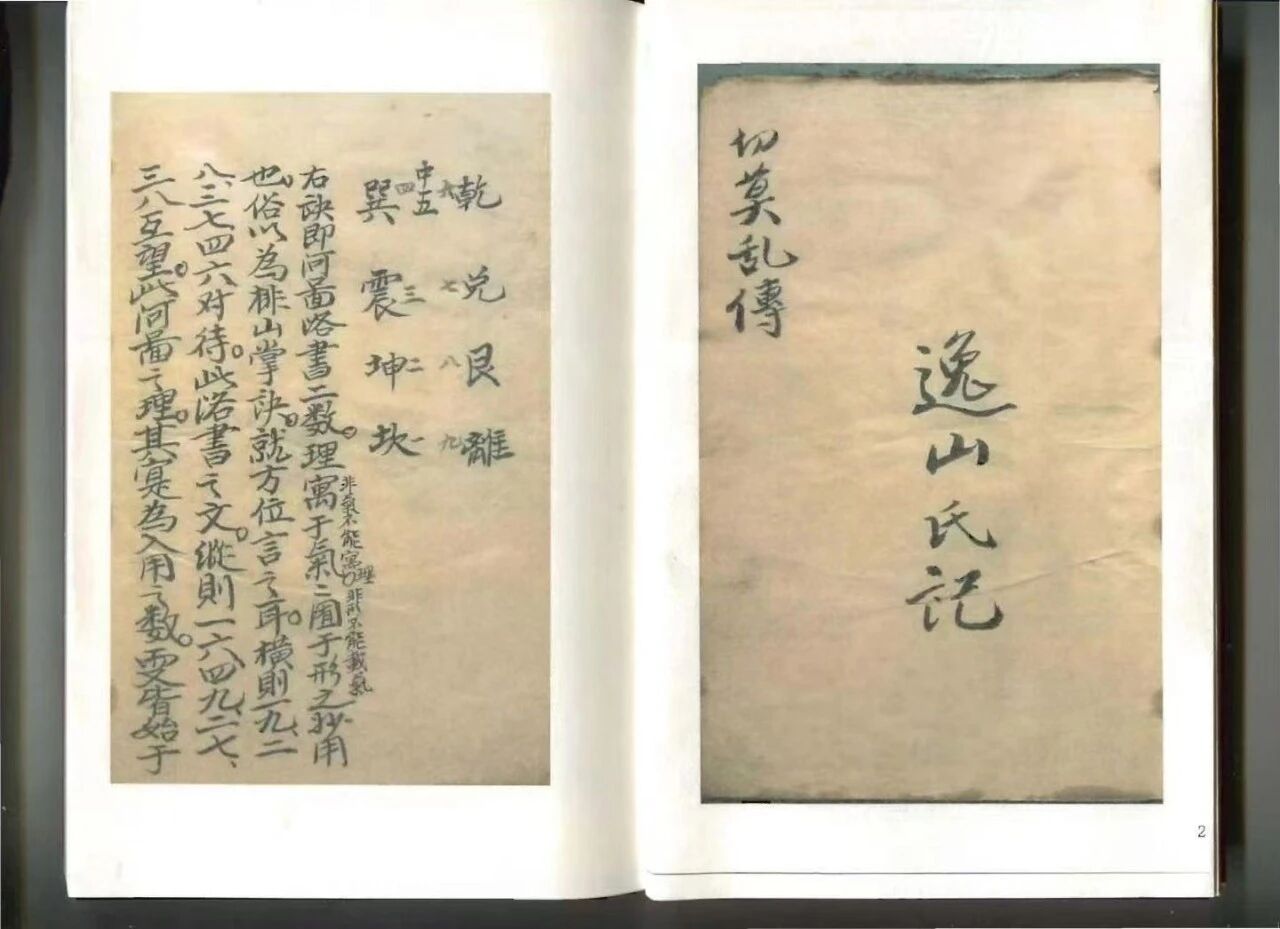 切莫乱傳
逸山氏記
2
乾 兌 艮 離
六 七 八 九
中五
四 三 二 一
巽 震 坤 坎
右訣即河啚洛書二数。理寓于氣〻囿于形之妙用
非氣不能寓理 非形不能載氣
也。俗以為排山掌訣。就方位言之耳。橫則一九、二
八、三七四六对待。此洛書之文。縱則一六、四九、二七、
三八互望。此河啚之理。其寔為入用之数。要皆始于